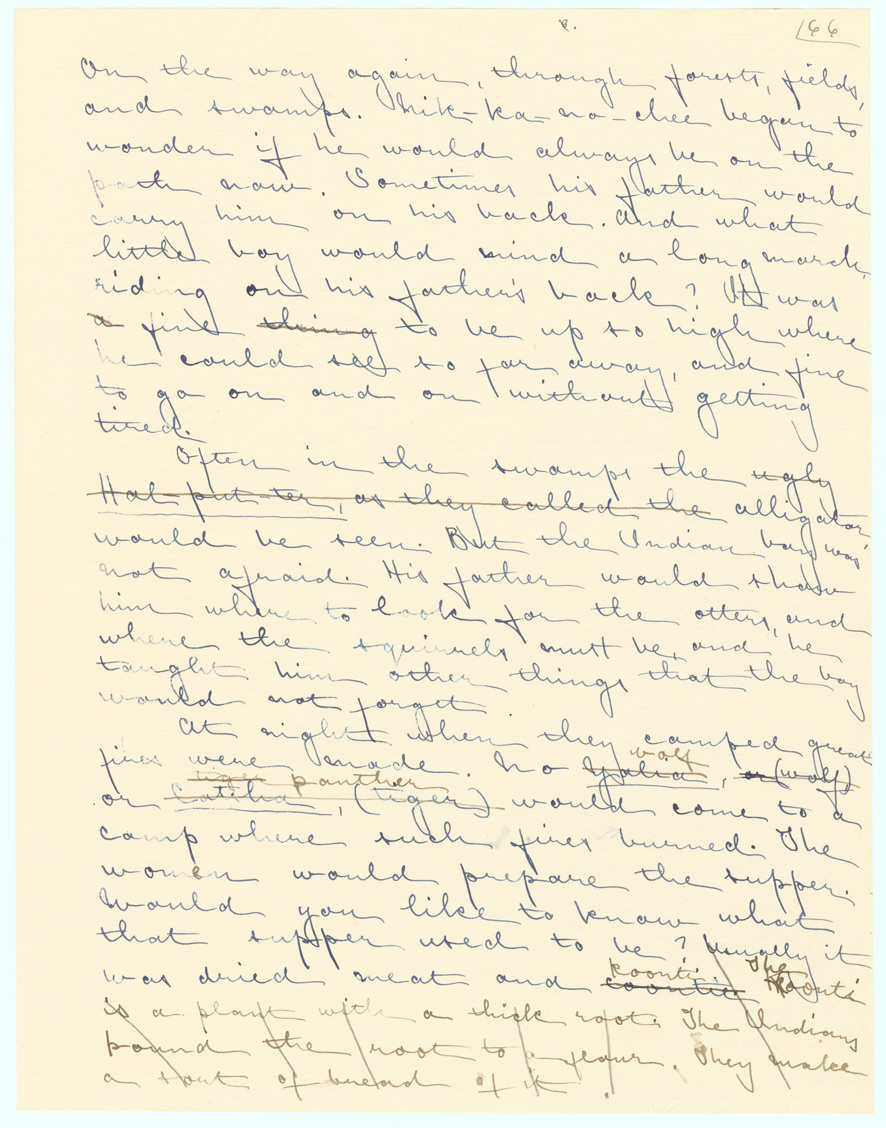 166
On the way again, through forests, fields,
and swamps. Nik-ka-no-chee began to
wonder if he would always be on the
path now. Sometimes his father would
carry him on his back. And what
little boy would mind a long march,
riding on his father's back? It was
a fine thing to be up so high where
he could see so far away, and fine
to go on and on without getting
tired.
Often in the swamps the ugly
Hal-put-ter, as they called the alligator
would be seen. But the Indian boy was
not afraid. His father would show
him where to look for the otters, and
where the squirrels must be, and he
taught him other things that the boy
would not forget.
At night when they camped great
wolf
fires were made. No Yalia, or (wolf)
tiger panther
or Catilia, (tiger) would come to a
camp where such fires burned. The
women would prepare the supper.
Would you like to know what
that supper used to be? Usually it
koonti. The
was dried meat and coontie. Koonti
is a plant with a thick root. The Indians
pound the root to a flour. They make
a sort of bread of it.